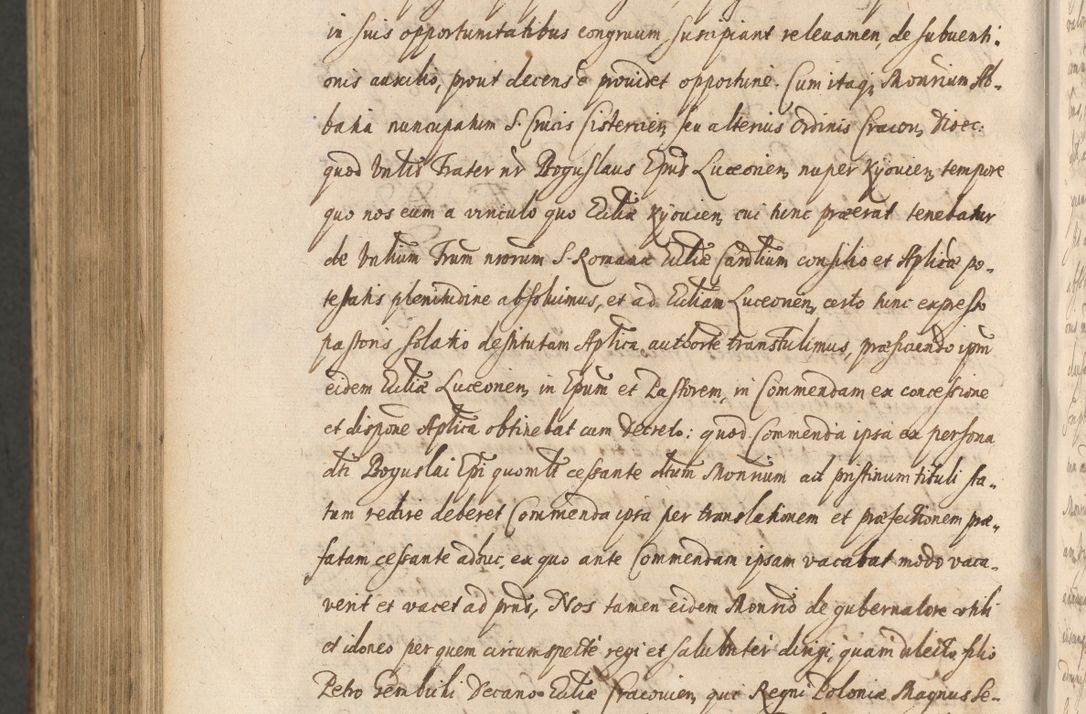 in suis opportunitatibus congruum suscipiant releuamen, de subuenti-
onis auxilio, prout decens è prouidet opportunè. Cum itaq, Monrium Ab-
batia nuncupatum S. Crucis Cistercien, seu alterius Ordinis Cracon, Dioec:
quod Vnlis Frater nr Boguslaus Epus Luceorien, nuper Kijouien, tempore
quo nos eum a vinculo quo Eccliæ Kijouien, cui tunc præerat tenebatur
de Vnlium Frum nrorum S. Romanæ Eccliæ Cardlium consilio et Aplicæ po-
testatis plenitudine absoluimus, et ad Eccliam Luceorien, certo tunc expresso
pastoris solatio destitutam Aplica authorte transtulimus, præficiendo ipsum
eidem Eccliæ Luceorien, in Epum et Pastorem, in Commendam ex concessione
et dispone Aplica obtinebat cum Decreto: quod Commenda ipsa ex persona
dti Boguslai Epi quomlt cessante dtum Monrium ad pristinum tituli sta-
tum redire deberet Commenda ipsa per translationem et præfectionem præ-
fatam cessante adhuc, ex quo ante Commendam ipsam vacabat modo vaca-
verit et vacet ad præs, Nos tamen eidem Monrio de gubernatore vtili
et idoneo per quem circumspectè regi et salubriter dirigi, quam dilecto filio
Petro Gembicki Decano Eccliæ Cracouien, qui Regni Poloniæ Magnus Se-